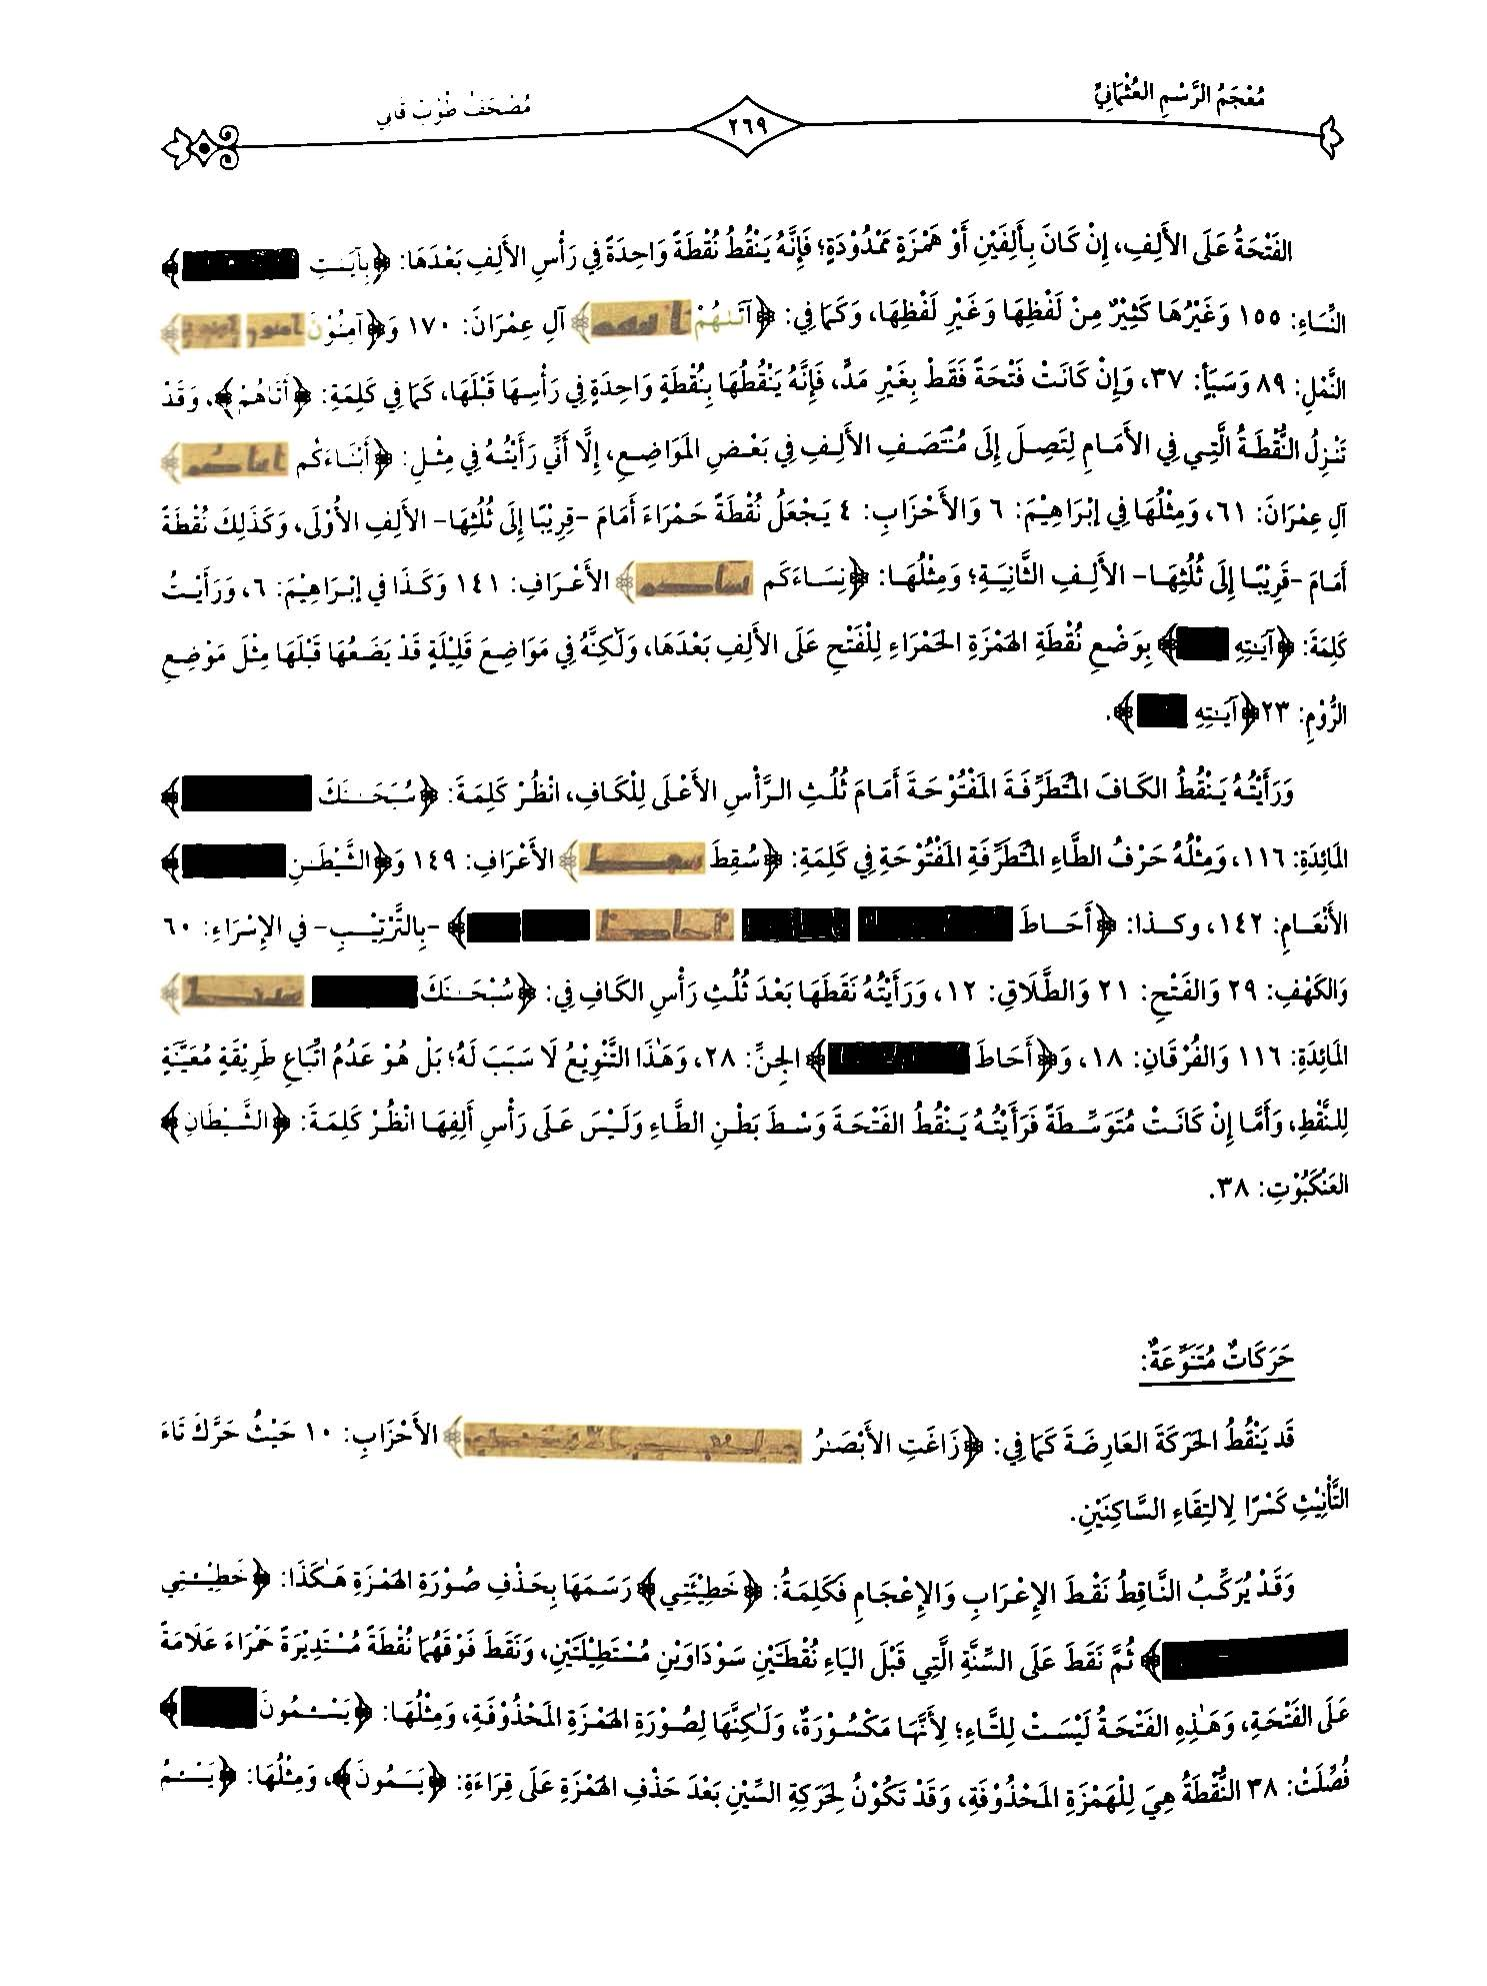 مُعْجَمُ الرَّسْمِ العُثْمَانِيِّ
٢٦٩
مُصْحَفُ طُوْبْ قَابِي
الفَتْحَةُ عَلَى الأَلِفِ، إِنْ كَانَ بِأَلِفَيْنِ أَوْ هَمْزَةٍ مَمْدُوْدَةٍ؛ فَإِنَّهُ يَنْقُطُ نُقْطَةً وَاحِدَةً فِي رَأْسِ الأَلِفِ بَعْدَهَا: ﴿بِآيَـٰتِ ﴾
النِّسَاءِ: ١٥٥ وَغَيْرُهَا كَثِيْرٌ مِنْ لَفْظِهَا وَغَيْرِ لَفْظِهَا، وَكَمَا فِي: ﴿آتَـٰهُمْ ﴾ آلِ عِمْرَانَ: ١٧٠ وَ﴿آمِنُوْنَ ﴾
النَّمْلِ: ٨٩ وَسَبَأٍ: ٣٧، وَإِنْ كَانَتْ فَتْحَةً فَقَطْ بِغَيْرِ مَدٍّ، فَإِنَّهُ يَنْقُطُهَا بِنُقْطَةٍ وَاحِدَةٍ فِي رَأْسِهَا قَبْلَهَا، كَمَا فِي كَلِمَةِ: ﴿أَتَاهُمْ﴾، وَقَدْ
تَنْزِلُ النُّقْطَةُ الَّتِي فِي الأَمَامِ لِتَصِلَ إِلَى مُنْتَصَفِ الأَلِفِ فِي بَعْضِ المَوَاضِعِ، إِلَّا أَنِّي رَأَيْتُهُ فِي مِثْلِ: ﴿أَبْنَاءَكُم ﴾
آلِ عِمْرَانَ: ٦١، وَمِثْلُهَا فِي إِبْرَاهِيْمَ: ٦ وَالأَحْزَابِ: ٤ يَجْعَلُ نُقْطَةً حَمْرَاءَ أَمَامَ -قَرِيْبًا إِلَى ثُلُثِهَا- الأَلِفِ الأُوْلَى، وَكَذَلِكَ نُقْطَةً
أَمَامَ -قَرِيْبًا إِلَى ثُلُثِهَا- الأَلِفِ الثَّانِيَةِ؛ وَمِثْلُهَا: ﴿نِسَاءَكَم ﴾ الأَعْرَافِ: ١٤١ وَكَذَا فِي إِبْرَاهِيْمَ: ٦، وَرَأَيْتُ
كَلِمَةَ: ﴿آيَـٰتِهِ ﴾ بِوَضْعِ نُقْطَةِ الهَمْزَةِ الحَمْرَاءِ لِلْفَتْحِ عَلَى الأَلِفِ بَعْدَهَا، وَلَٰكِنَّهُ فِي مَوَاضِعَ قَلِيْلَةٍ قَدْ يَضَعُهَا قَبْلَهَا مِثْلَ مَوْضِعِ
الرُّوْمِ: ٢٣﴿آيَـٰتِهِ ﴾.
وَرَأَيْتُهُ يَنْقُطُ الكَافَ المُتَطَرِّفَةَ المَفْتُوْحَةَ أَمَامَ ثُلُثِ الرَّأْسِ الأَعْلَى لِلْكَافِ، انْظُرْ كَلِمَةَ: ﴿سُبَحَـٰنَكَ ﴾
المَائِدَةِ: ١١٦، وَمِثْلُهُ حَرْفُ الطَّاءِ المُتَطَرِّفَةِ المَفْتُوْحَةِ فِي كَلِمَةِ: ﴿سُقِطَ ﴾ الأَعْرَافِ: ١٤٩ وَ﴿الشَّيْطَـٰنِ ﴾
الأَنْعَامِ: ١٤٢، وكذا: ﴿أَحَاطَ ﴾ -بِالتَّرْتِيْبِ- فِي الإِسْرَاءِ: ٦٠
وَالكَهْفِ: ٢٩ وَالفَتْحِ: ٢١ وَالطَّلَاقِ: ١٢، وَرَأَيْتُهُ نَقَطَهَا بَعْدَ ثُلُثِ رَأْسِ الكَافِ فِي: ﴿سُبْحَـٰنَكَ ﴾
المَائِدَةِ: ١١٦ وَالفُرْقَانِ: ١٨، وَ﴿أَحَاطَ ﴾ الجِنِّ: ٢٨، وَهَٰذَا التَّنْوِيْعُ لَا سَبَبَ لَهُ؛ بَلْ هُوْ عَدَمُ اتِّبَاعِ طَرِيْقَةٍ مُعَيَّنَةٍ
لِلنَّقْطِ، وَأَمَّا إِنْ كَانَتْ مُتَوَسِّطَةً فَرَأَيْتُهُ يَنْقُطُ الفَتْحَةَ وَسْطَ بَطْنِ الطَّاءِ وَلَيْسَ عَلَى رَأْسِ أَلِفِهَا انْظُرْ كَلِمَةَ: ﴿الشَّيْطَانِ﴾
العَنْكَبُوْتِ: ٣٨.
حَرَكَاتٌ مُتَنَوِّعَةٌ:
قَد يَنْقُطُ الحَرَكَةَ العَارِضَةَ كَمَا فِي: ﴿زَاغَتِ الأَبْصَـٰرُ ﴾ الأَحْزَابِ: ١٠ حَيْثُ حَرَّكَ تَاءَ
التَّأْنِيْثِ كَسْرًا لِالتِقَاءِ السَّاكِنَيْنِ.
وَقَدْ يُرَكِّبُ النَّاقِطُ نَقْطَ الإِعْرَابِ وَالإِعْجَامِ فَكَلِمَةُ: ﴿خَطِيْئَتِي﴾ رَسَمَهَا بِحَذْفِ صُوْرَةِ الهَمْزَةِ هَٰكَذَا: ﴿خَطِيْـَٔتِي
﴾ ثُمَّ نَقَطَ عَلَى السِّنَّةِ الَّتِي قَبْلَ اليَاءِ نُقْطَتَيْنِ سَوْدَاوَيْنِ مُسْتَطِيْلَتَيْنِ، وَنَقَطَ فَوْقَهُمَا نُقْطَةً مُسْتَدِيْرَةً حَمْرَاءَ عَلَامَةً
عَلَى الفَتْحَةِ، وَهَٰذِهِ الفَتْحَةُ لَيْسَتْ لِلتَّاءِ؛ لِأَنَّهَا مَكْسُوْرَةٌ، وَلَٰكِنَّهَا لِصُوْرَةِ الهَمْزَةِ المَحْذُوْفَةِ، وَمِثْلُهَا: ﴿يَسْـَٔمُونَ ﴾
فُصِّلَتْ: ٣٨ النُّقْطَةُ هِيَ لِلْهَمْزَةِ المَحْذُوْفَةِ، وَقَدْ تَكُوْنُ لِحَرَكَةِ السِّيْنِ بَعْدَ حَذْفِ الهَمْزَةِ عَلَى قِرَاءَةِ: ﴿يَسَمُونَ﴾، وَمِثْلُهَا: ﴿يَسْـَٔمُ